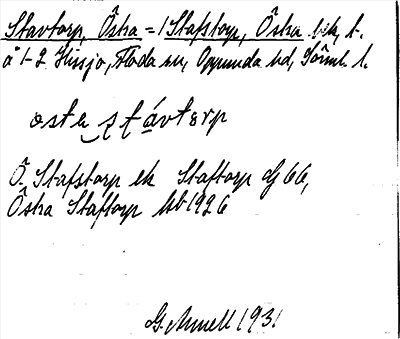 Stavtorp, Östra = (Stafstorp, Östra bek, t.
å 1-2 Kissjö, Floda sn, Oppunda hd, Söml. l.
östa stávtorp
Ö. Stafstorp ek Staftorp Gj 66,
Östra Staftorp hb 1926
G. Annell 1931